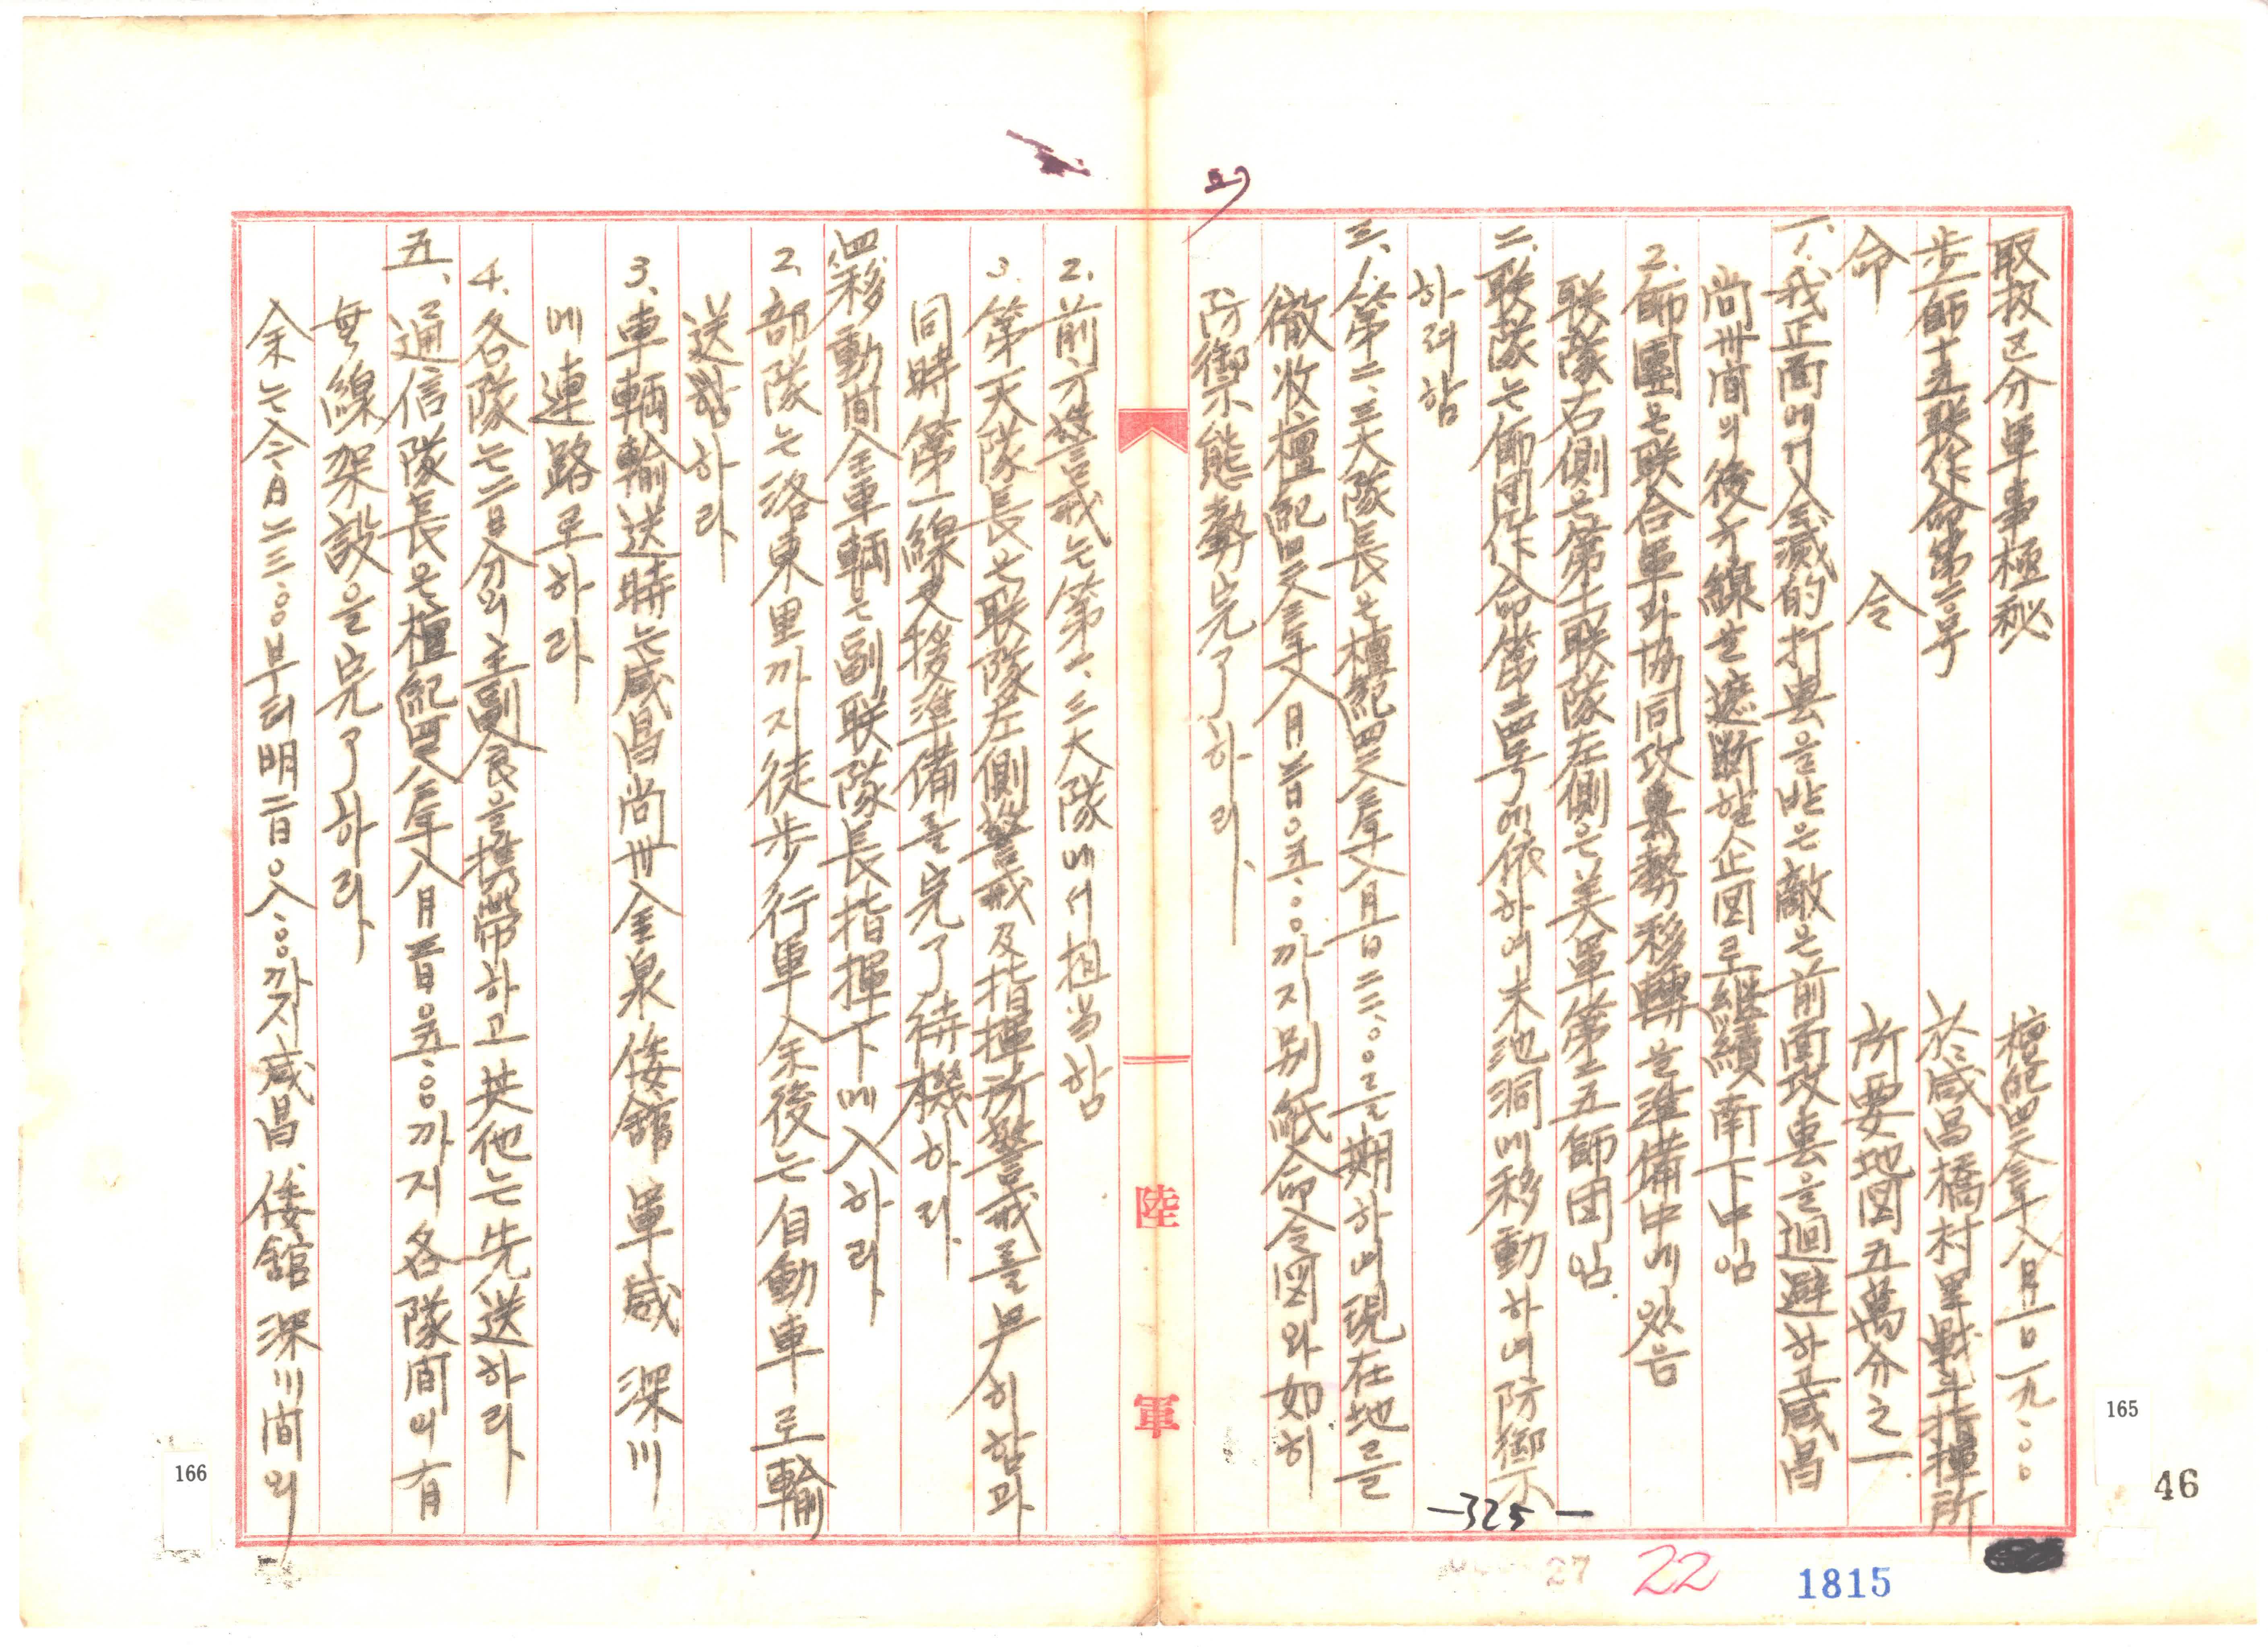 取扱区分軍事極秘 檀紀四二八三年八月一日一九.○○
步一師十五联作命第一号 於咸昌橋村里戰斗指揮所
命 令 所要地図五萬分之一
一、1.我正面에서全滅的打擊을받은敵은前面攻擊을迴避하고咸昌
尚州間의後方線을遮斷할企図로継續南下中임
2.師團은联合軍과協同攻擊態勢移轉을準備中에있음
联隊右側은第十二联隊左側은美軍第二五師団임.
二、联隊는師団作命第 号에依하여末池洞에移動하여防禦
하려함
三、1.第二、三大隊長은檀紀四二八三年八月一日二二.○○를期하여現在地를
徹收檀紀四二八三年八月二日○五.○○까지別紙命令図와如히
防禦態勢完了하라.
2.前方警戒는第一、三大隊에서担当함
3.第一大隊長은联隊左側警戒及指揮所警戒를 히함과
同時第一線支援準備를完了待機하라.
四、移動間全車輌은副联隊長指揮下에入하라.
2、部隊는洛東里까지徒步行軍余後는自動車로輸
送할하라
3、車輌輸送時는咸昌尚州金泉倭館軍威 深川
에連路로하라
4、各隊는二日分의主副食을携帶하고其他는先送하라.
五、通信隊長은檀紀四二八三年八月二日○五.○○까지各隊間의有
無線架設을完了하라.
余는今一日二三.○○부터明二日○八.○○까지咸昌倭館深川間의
陸軍
-325-
27
22
1815
46
165
166